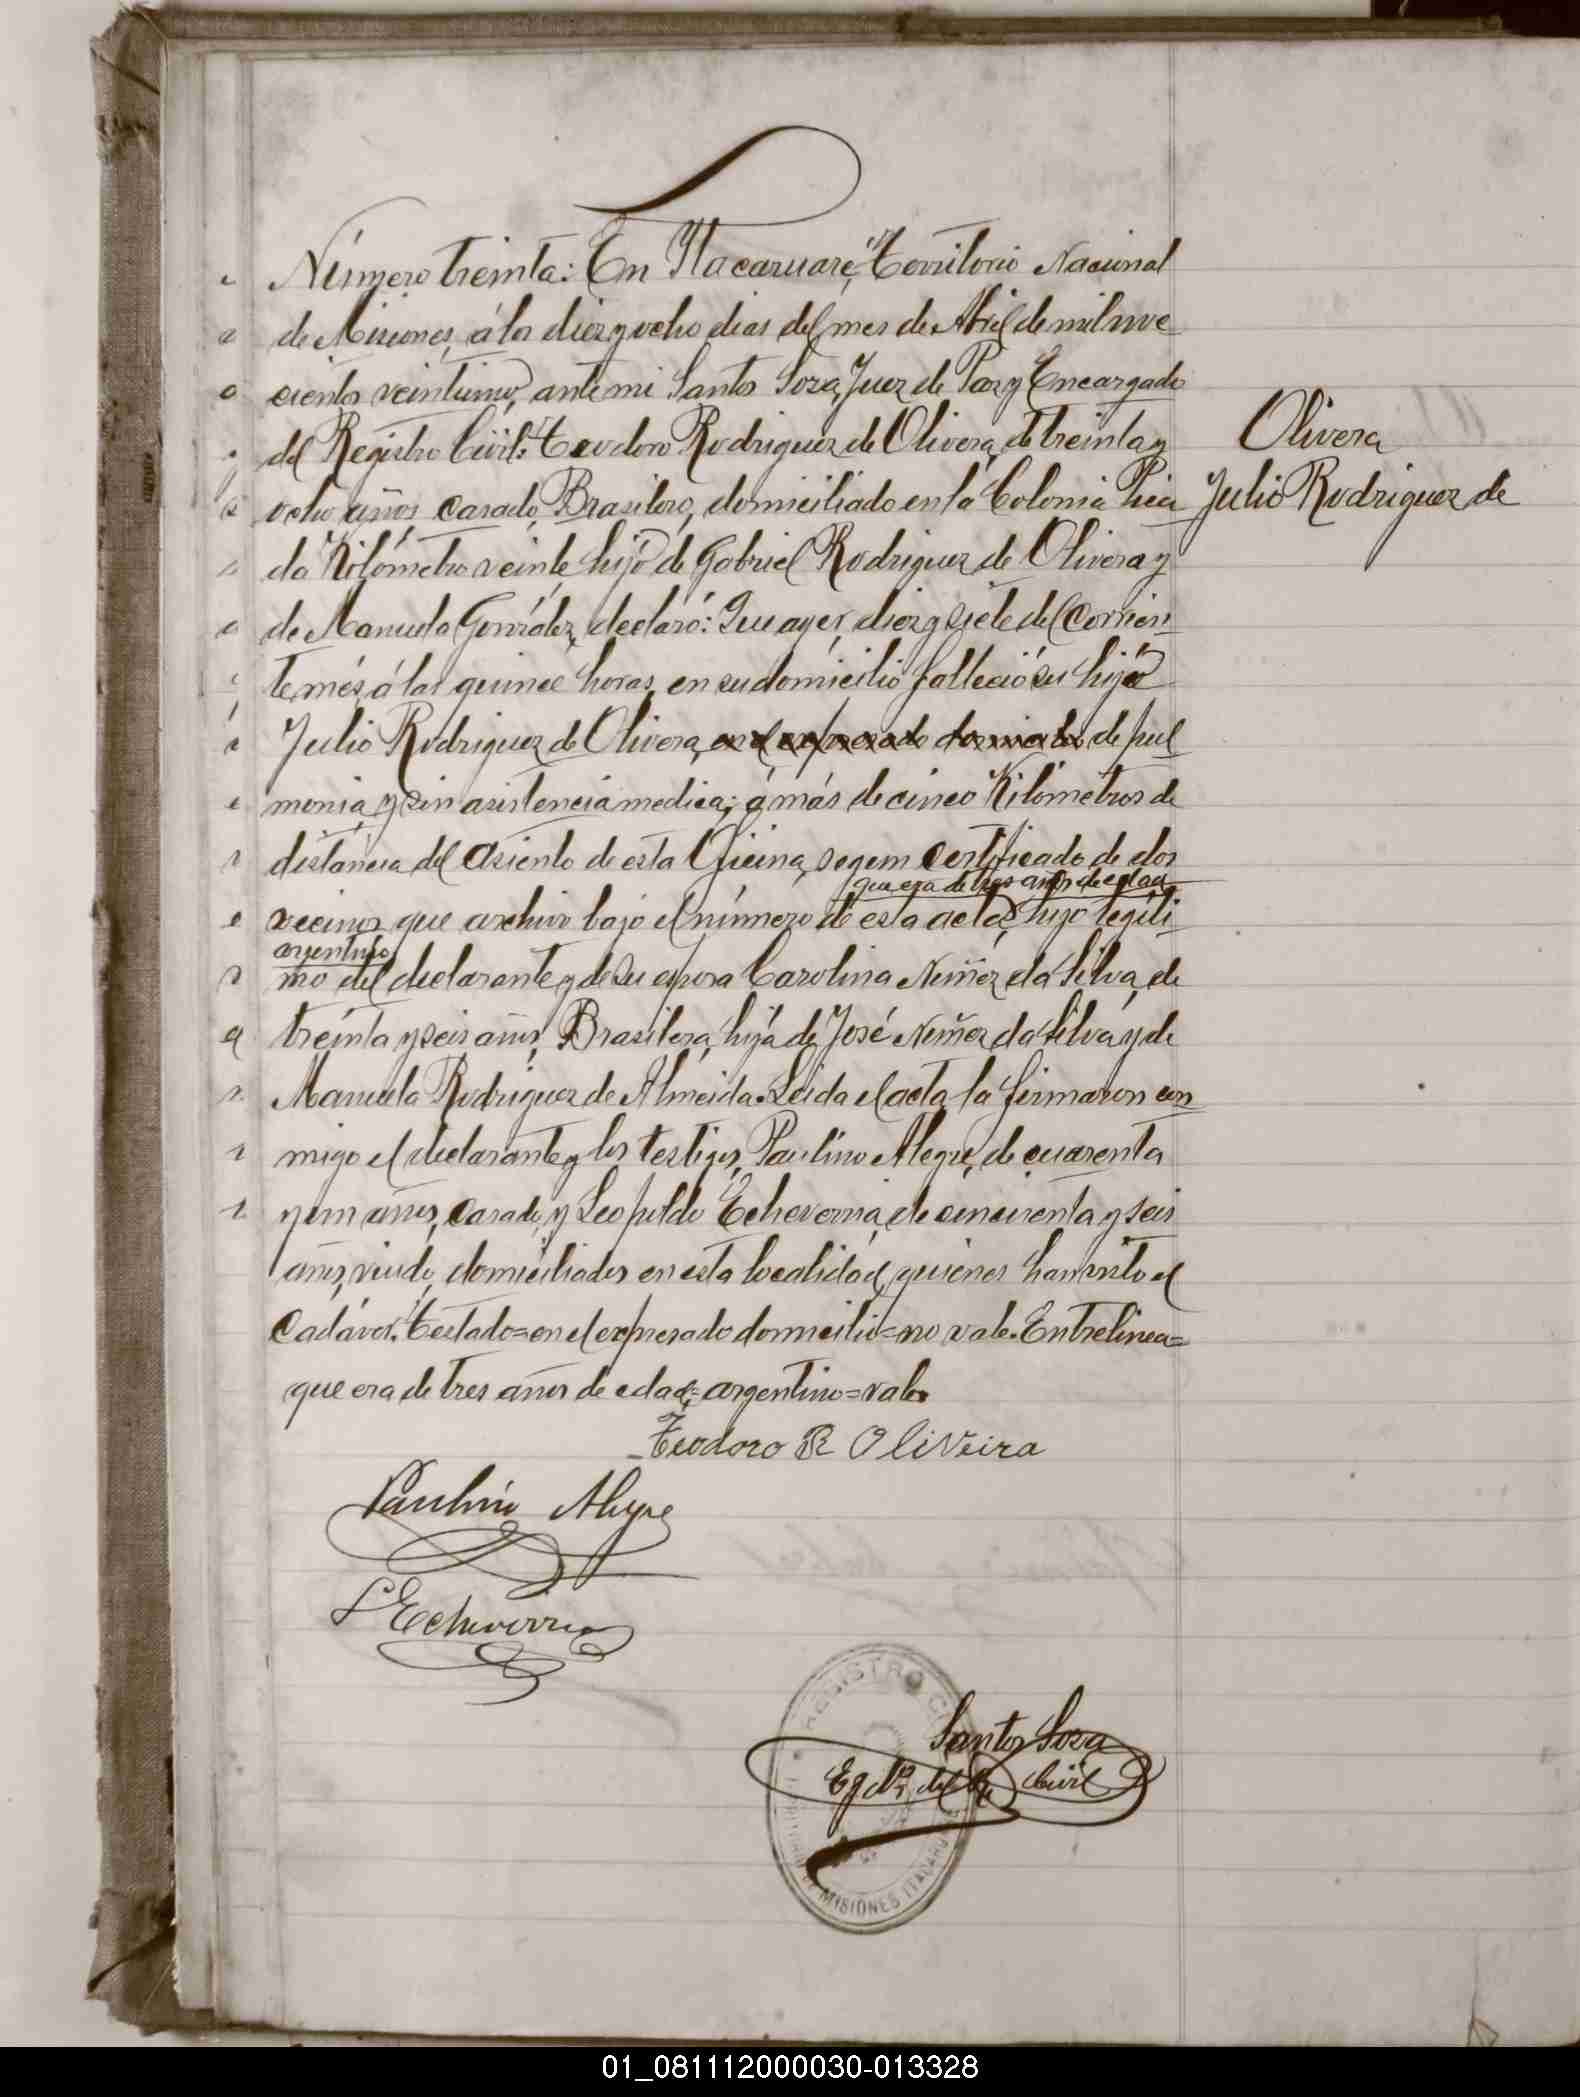 Número treinta: En Ytacaruaré, Territorio Nacional
de Misiones, á los diez y ocho dias del mes de Abril de mil nove
cientos veintiuno, ante mi Santos Soza, Juez de Paz y Encargado
del Registro Civil: Teodoro Rodriguez de Olivera, de treinta y
ocho años, casado, Brasilero, domiciliado en la Colonia Pica
da Kilómetro veinte, hijo de Gabriel Rodriguez de Olivera y
de Manuela González, declaró: Que ayer, diez y siete del corrien
te més, á las quince horas, en su domicilio falleció su hijo
Julio Rodriguez de Olivera, en el expresado domicilio de pul
monia, y sin asistencia medica; á más de cinco Kilómetros de
distáncia del asiento de esta Oficina, segun certificado de dos
que era de tres años de edad
vecinos que archivo bajo el número de esta acta, hijo legíti
argentino
mo del declarante y de su esposa Carolina Nuñez da Silva, de
treinta y seis años, Brasilera, hija de José Nuñez da Silva y de
Manuela Rodriguez de Almeida. Leida el acta la firmaron con
migo el declarante y los testigos, Paulino Alegre, de cuarenta
y un años, casado, y Leopoldo Echeverria, de cincuenta y seis
años, viudo, domiciliados en esta localidad, quienes han visto el
cadáver. Testado=en el expresado domicilio=no vale. Entrelinea=
que era de tres años de edad;=argentino=vale.
Olivera
Julio Rodriguez de
Teodoro R Oliveira
Paulino Alegre
L Echeverria
Santos Soza
Egdo. del R. Civil
REGISTRO
MISIONES ITACARUARE
01_081112000030-013328